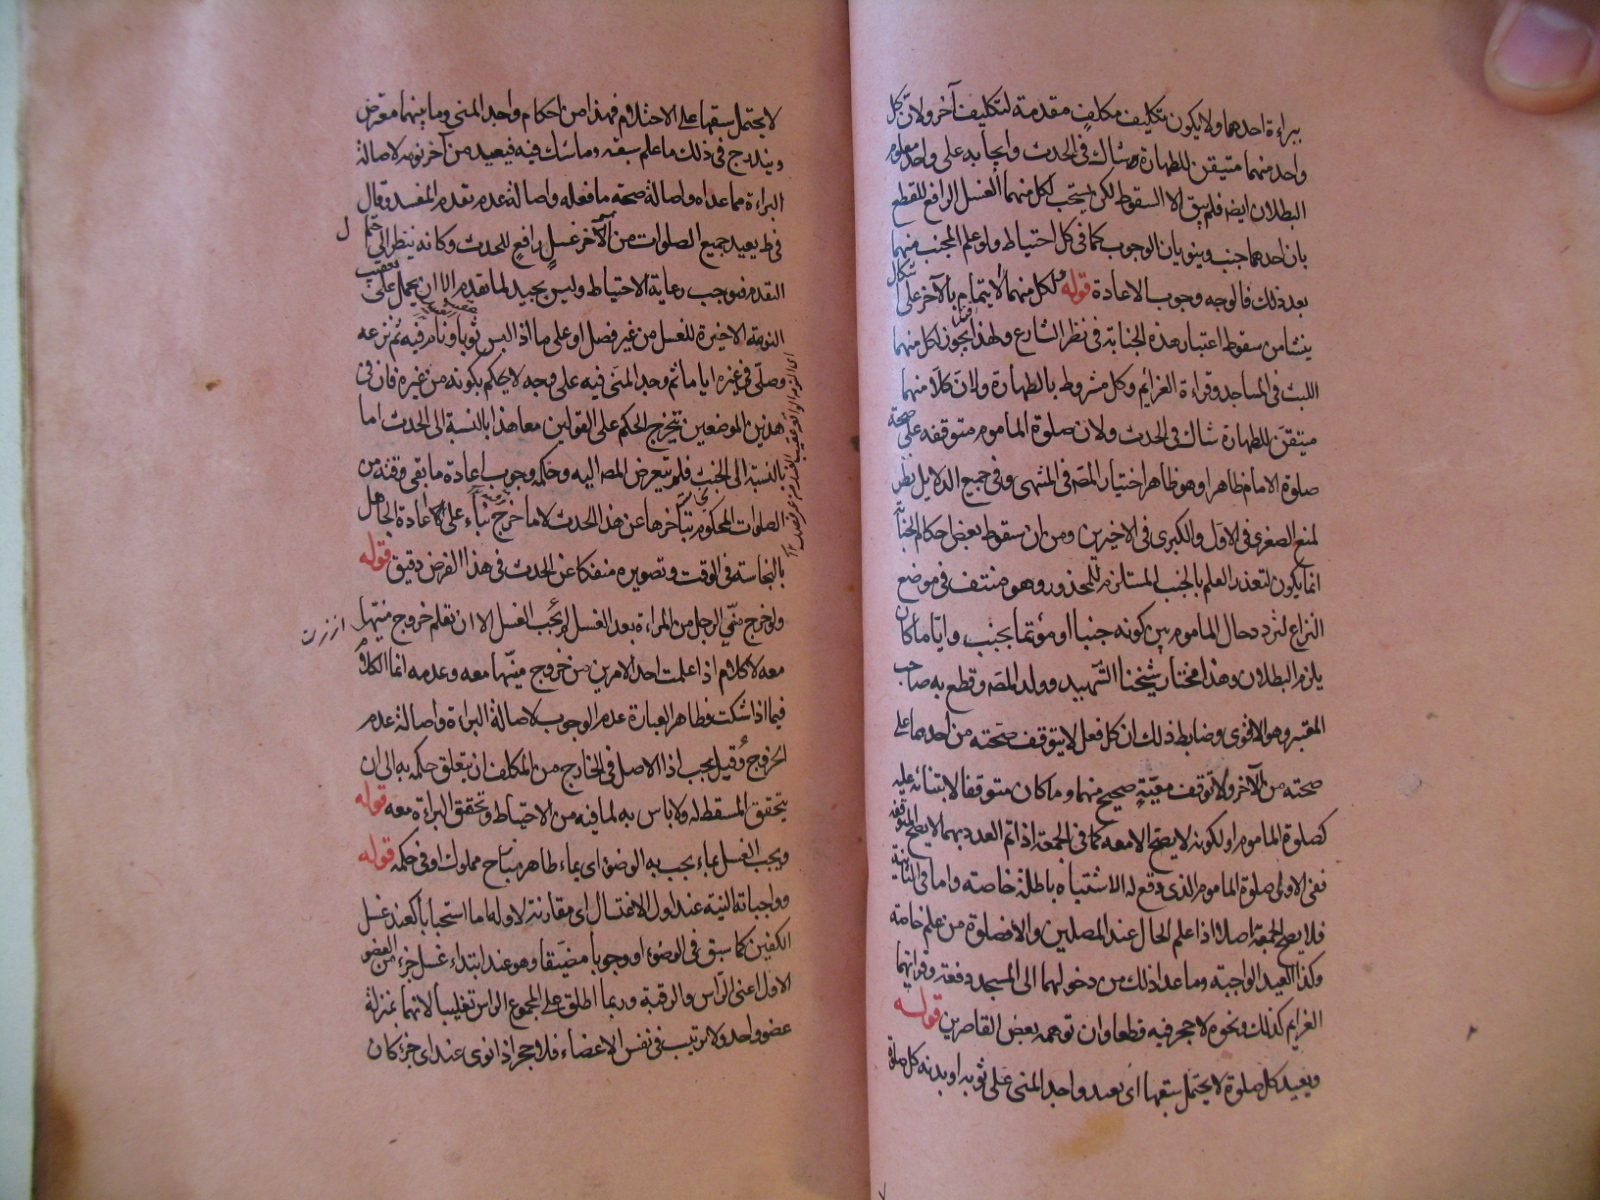 ببراءة احدهما ولا يكون تكليف مكلف مقدمة لتكليف آخر ولان كل
واحد منهما متيقن للطهارة وشاك في الحدث وايجابه على واحد معلوم
البطلان ايضه فلم يبق الا السقوط لكن يستحب لكل منهما الغسل الرافع للقطع
بان احدهما جنب وينويان الوجوب كما في كل احتياط ولو علم المجنب منهما
بعد ذلك فالوجه وجوب الاعادة قوله ولكل منهما الايتمام بالآخر على اشكال
ينشا من سقوط اعتبار هذه الجنابة في نظر الشارع ولهذا يجوز لكل منهما
اللبث في المساجد وقراءة العزائم وكل مشروط بالطهارة ولان كلا منهما
متيقن للطهارة شاك في الحدث ولان صلوة الماموم متوقفه على صحة
صلوة الامام ظاهرا وهو ظاهر اختيار المصه في المنتهى وفي جميع الدلايل نظر
لمنع الصغرى في الاول والكبرى في الاخيرين ومن ان سقوط بعض احكام الجنابة
انما يكون لتعذر العلم بالجنب المستلزم للمحذور وهو منتف في موضع
النزاع لتردد حال الماموم بين كونه جنبا او مؤتما بجنب وايا ما كان
يلزم البطلان وهذا مختار شيخنا الشهيد وولد المصه وقطع به صاحب
المعتبر وهو الاقوى وضابط ذلك ان كل فعل لا يتوقف صحته من احدهما على
صحته من الآخر ولا توقف معية صحيح منهما وما كان متوقفا لابتنائه عليه
كصلوة الماموم او لكونه لا يصح الا معه كما في الجمعة اذا تم العدد بهما لا يصح المتوقفة
ففي الاولى صلوة الماموم الذي وقع له الاشتباه باطلة خاصته واما في الثانية
فلا يصح الجمعة اصلا اذا علم الحال عند المصلين والا فصلوة من علم خاصة
وكذا العيد الواجبة وما عدا ذلك من دخولهما الى المسجد دفعة وقراتهما
العزايم كذلك ونحوه لا حجر فيه قطعا وان توهمه بعض القاصرين قوله
ويعيد كل صلوة لا يحتمل سبقها اي يعيد واجد المني على ثوبه او بدنه كل صلوة
لا يحتمل سبقها على الاحتلام فهذا من احكام واجد المني وما بينهما معترض
ويندرج في ذلك ما علم سبقه وما شك فيه فيعيد من آخر نومه لاصالة
البراءة مما عداه واصالة صحة ما فعله واصالة عدم تقدم المفسد وقال
في ط يعيد جميع الصلوات من آخر غسل رافع للحدث وكانه ينظر الى احتمال
التقدم فيوجب رعاية الاحتياط وليس بجيد لما تقدم الا ان يحمل على تعقيب
النومة الاخيرة للغسل من غير فصل او على ما اذا لبس ثوبا ونام فيه ثم نزعه
وصلى في غيره اياما ثم وجد المني فيه على وجه لا يحكم بكونه من غيره فان في
هذين الموضعين يتخرج الحكم على القولين معا هذا بالنسبة الى الحدث اما
بالنسبة الى الخبث فلم يتعرض المصه اليه وحكمه وجوب اعادة ما بقي وقته من
الصلوات المحكوم بتاخرها عن هذا الحدث لا ما خرج بناء على الاعادة الجاهل
بالنجاسة في الوقت وتصويره منفكا عن الحدث في هذا الفرض دقيق قوله
ولو خرج مني الرجل من المراءة بعد الغسل لم يجب الغسل الا ان تعلم خروج منيها
معه لا كلام اذا علمت احد الامرين من خروج منيها معه وعدمه انما الكلام
فيما اذا شكت فظاهر العبارة عدم الوجوب لاصالة البراءة واصالة عدم
الخروج وقيل يجب اذا الاصل في الخارج من المكلف ان يتعلق حكمه به الى ان
يتحقق المسقط له ولا باس به لما فيه من الاحتياط وتحقق البراءة معه قوله
ويجب الغسل بماء يجب به الوضوء اي بماء طاهر مباح مملوك او في حكمه قوله
وواجباته النية عند اول الاغتسال اي مقارنة لاوله اما استحبابا كعند غسل
الكفين كما سبق في الوضوء او وجوبا مضيقا وهو عند ابتداء غسل جزء من العضو
الاول اعني الراس والرقبة وربما اطلق على المجموع الراس تغليبا لانهما بمنزلة
عضو واحد ولا ترتيب في نفس الاعضاء فلا حجر اذا نوى عند اي جزء كان